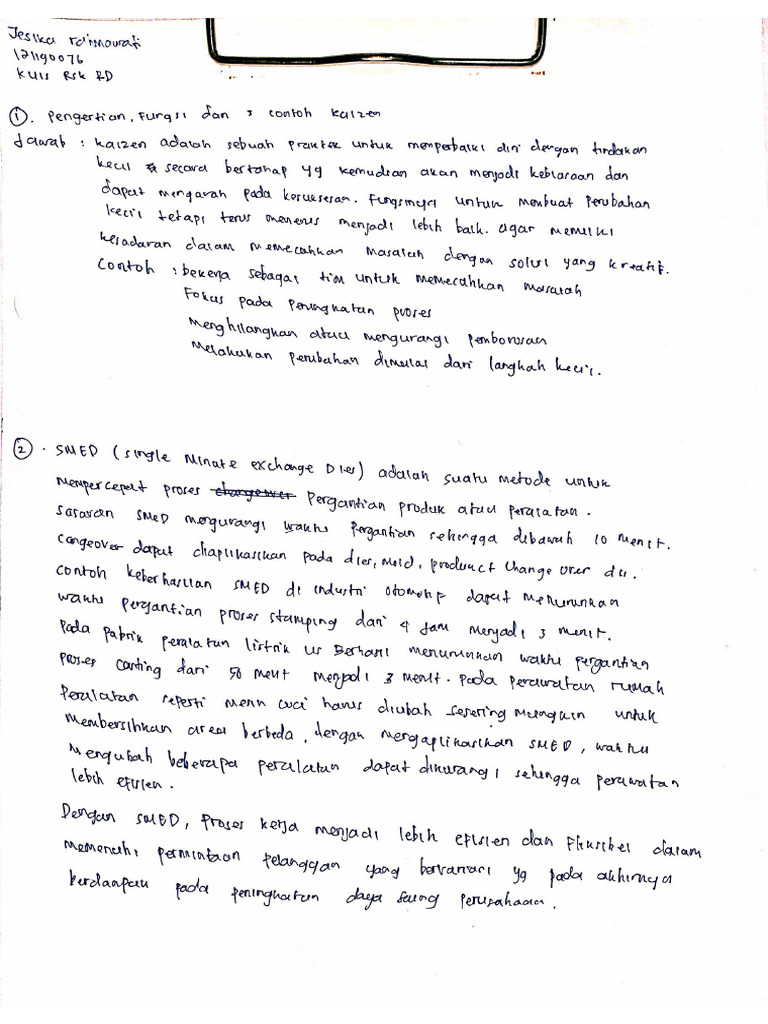 Jesika rahmawati
121190076
KUIS RSK RD
①. Pengertian, Fungsi dan 3 contoh kaizen
Jawab : kaizen adalah sebuah praktek untuk memperbaiki diri dengan tindakan
kecil secara bertahap yg kemudian akan menjadi kebiasaan dan
dapat mengarah pada kesuksesan. Fungsinya untuk membuat perubahan
kecil tetapi terus menerus menjadi lebih baik. agar memiliki
kesadaran dalam memecahkan masalah dengan solusi yang kreatif.
Contoh : bekerja sebagai tim untuk memecahkan masalah
Fokus pada peningkatan proses
Menghilangkan atau mengurangi pemborosan
Melakukan perubahan dimulai dari langkah kecil.
② . SMED (single Minute exchange Dies) adalah suatu metode untuk
mempercepat proses changeover pergantian produk atau peralatan.
sasaran SMED mengurangi waktu pergantian sehingga dibawah 10 menit.
Cangeover dapat diaplikasikan pada dies, mold, product change over dll.
contoh keberhasilan SMED di industri otomotif dapat menurunkan
waktu pergantian proses stamping dari 4 jam menjadi 3 menit.
pada pabrik peralatan listrik US Berhasil menurunkan waktu pergantian
proses casting dari 50 menit menjadi 3 menit. pada perawatan rumah
peralatan seperti mesin cuci harus diubah sesering mungkin untuk
membersihkan area berbeda, dengan mengaplikasikan SMED, waktu
mengubah beberapa peralatan dapat dikurangi sehingga perawatan
lebih efisien.
Dengan SMED, proses kerja menjadi lebih efisien dan fleksibel dalam
memenuhi permintaan pelanggan yang bervariasi yg pada akhirnya
berdampak pada peningkatan daya saing perusahaan.